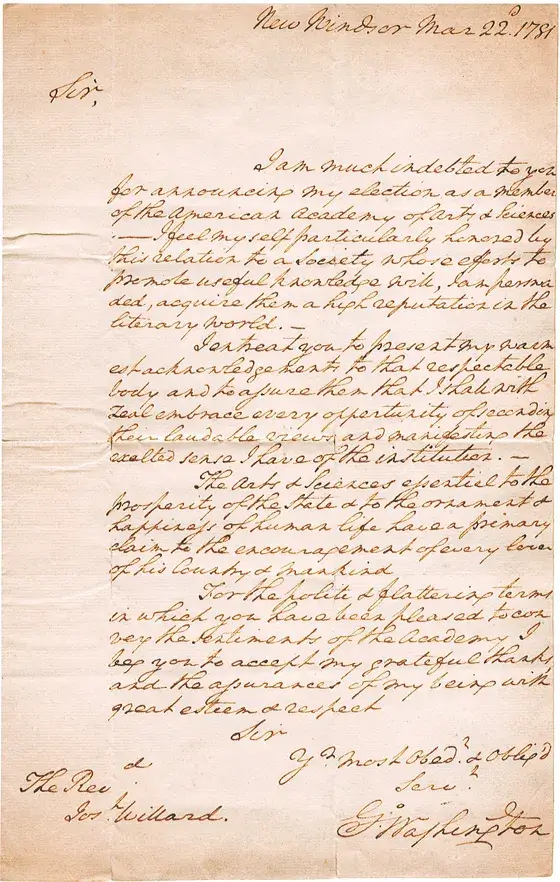 New Windsor Mar 22d. 1781
Sir,
I am much indebted to you
for announcing my election as a member
of the American Academy of Arts & Sciences
. — I feel myself particularly honored by
this relation to a Society whose efforts to
promote useful knowledge will, I am persua
ded, acquire them a high reputation in the
literary world. —
I entreat you to present my warm
est acknowledgements to that respectable
body and to assure them that I shall with
zeal embrace every opportunity of seconding
their laudable views and manifesting the
exalted sense I have of the institution. —
The Arts & Sciences essential to the
prosperity of the State & to the ornament &
happiness of human life have a primary
claim to the encouragement of every lover
of his Country & mankind
For the polite & flattering terms
in which you have been pleased to con
vey the sentiments of the Academy I
beg you to accept my grateful thanks
and the assurances of my being with
great esteem & respect
Sir
Yr most Obedt. & Oblig'd
Servt.
Go. Washington
The Revd.
Josh. Willard.